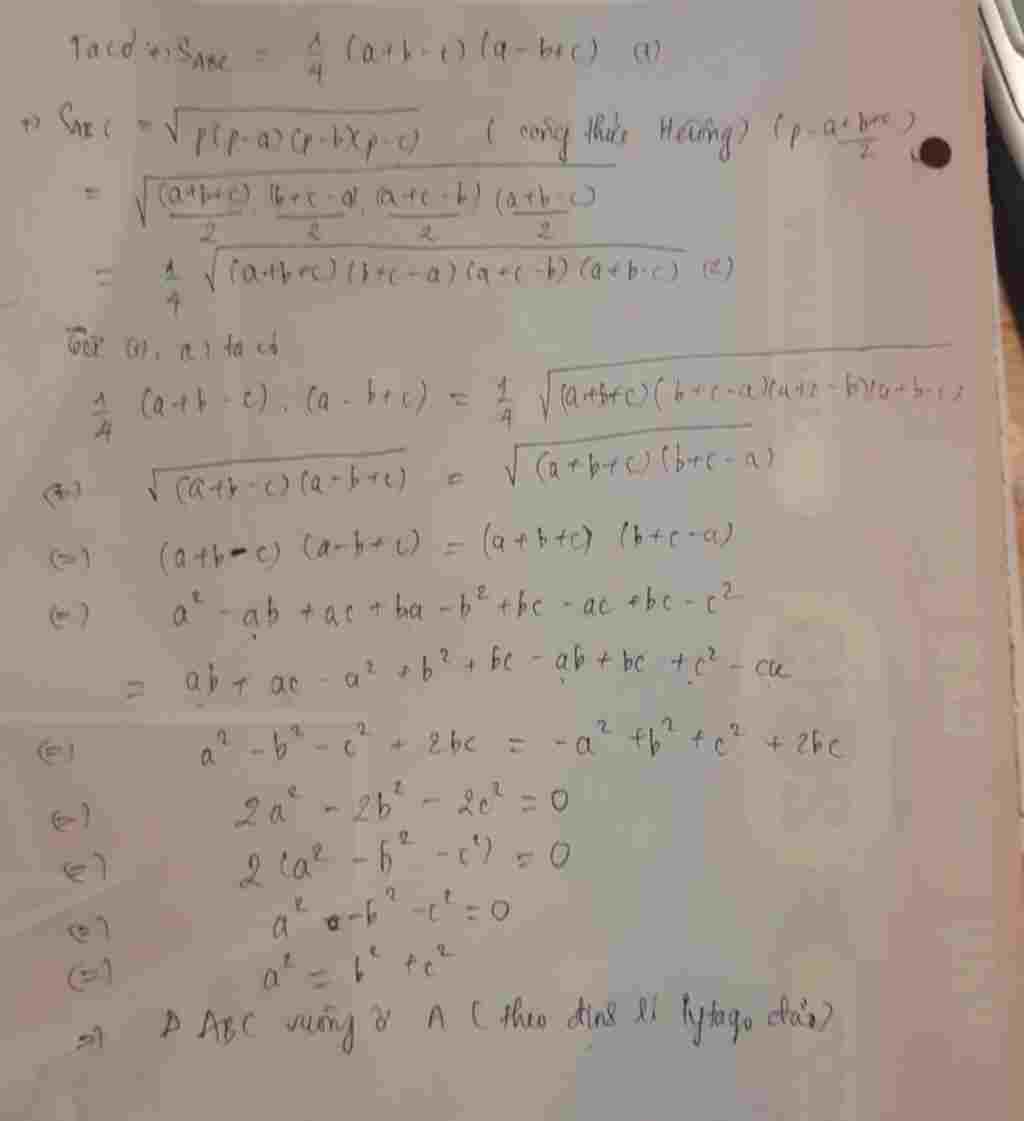 Ta có +) S_ABC = 1/4 (a+b-c) (a-b+c) (1)
+) S_ABC = √(p(p-a)(p-b)(p-c)) ( công thức Hêrông) (p = (a+b+c)/2)
= √((a+b+c)/2 . (b+c-a)/2 . (a+c-b)/2 . (a+b-c)/2)
= 1/4 √((a+b+c)(b+c-a)(a+c-b)(a+b-c)) (2)
Từ (1), (2) ta có
1/4 (a+b-c) . (a-b+c) = 1/4 √((a+b+c)(b+c-a)(a+c-b)(a+b-c))
(=) √((a+b-c)(a-b+c)) = √((a+b+c)(b+c-a))
(=) (a+b-c) (a-b+c) = (a+b+c) (b+c-a)
(=) a² - ab + ac + ba - b² + bc - ac + bc - c²
= ab + ac - a² + b² + bc - ab + bc + c² - ca
(=) a² - b² - c² + 2bc = -a² + b² + c² + 2bc
(=) 2a² - 2b² - 2c² = 0
(=) 2(a² - b² - c²) = 0
(=) a² - b² - c² = 0
(=) a² = b² + c²
=) Δ ABC vuông ở A ( theo định lí Pytago đảo)